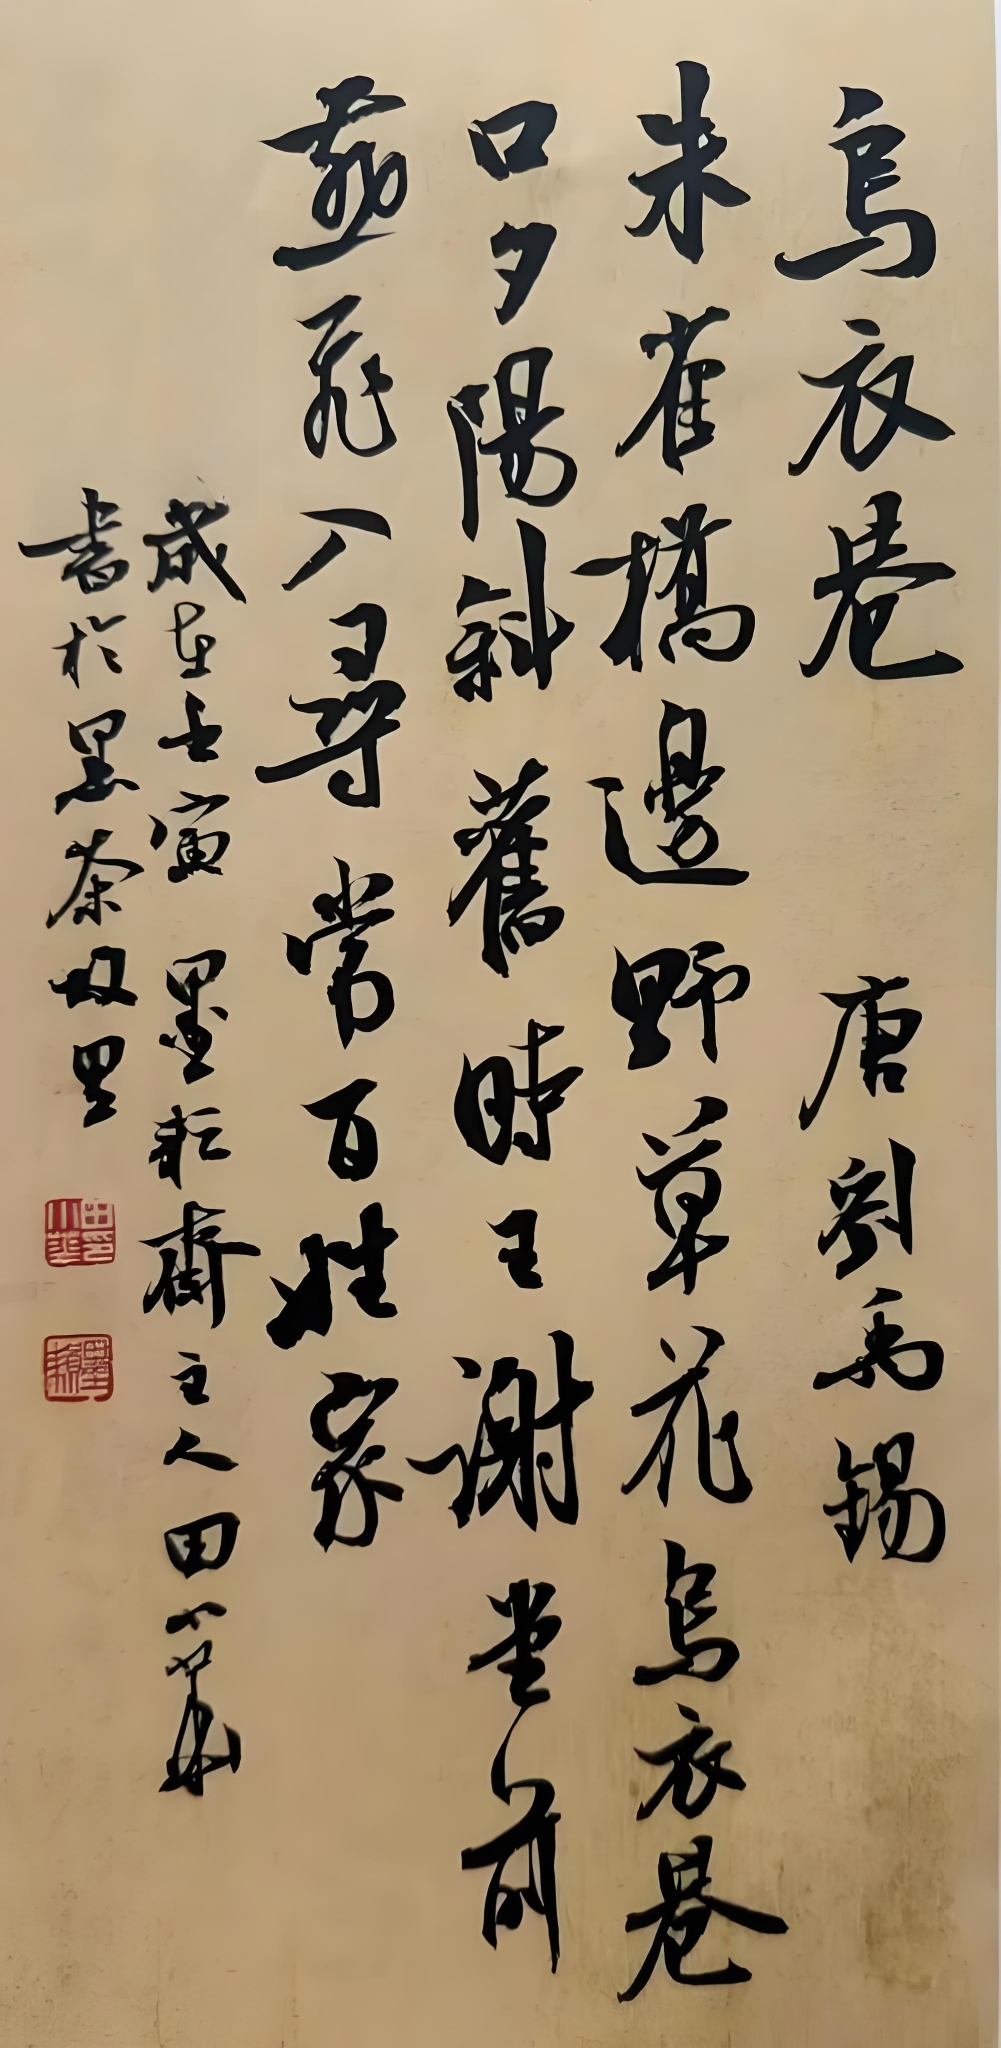 烏衣巷 唐劉禹錫
朱雀橋邊野草花烏衣巷
口夕陽斜舊時王謝堂前
燕飛入尋常百姓家
歲在壬寅墨耘齋主人田小華
書於黑茶故里